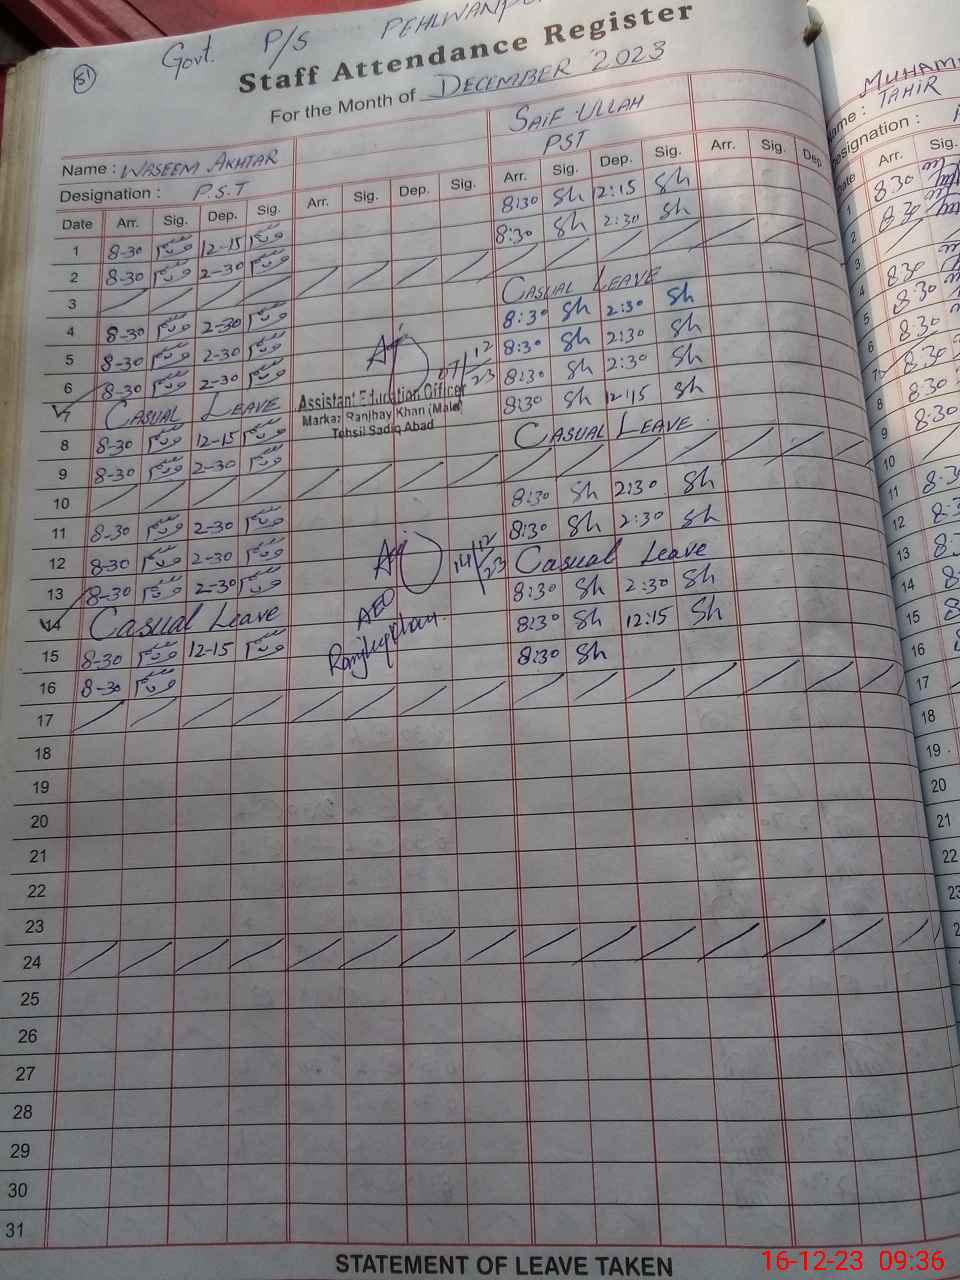 81
Govt. P/S
Staff Attendance Register
For the Month of DECEMBER 2023
Name : WASEEM AKHTAR SAIF ULLAH
Designation : P.S.T PST
Date Arr. Sig. Dep. Sig. Arr. Sig. Dep. Sig. Arr. Sig. Dep. Sig. Arr. Sig. Dep.
1 8-30 وسیم 12-15 وسیم 8:30 Sh 12:15 Sh
2 8-30 وسیم 2-30 وسیم 8:30 Sh 2:30 Sh
3
4 8-30 وسیم 2-30 وسیم CASUAL LEAVE
5 8-30 وسیم 2-30 وسیم 8:30 Sh 2:30 Sh
6 8-30 وسیم 2-30 وسیم 8:30 Sh 2:30 Sh
7 CASUAL LEAVE 8:30 Sh 2:30 Sh
8 8-30 وسیم 12-15 وسیم 8:30 Sh 12:15 Sh
9 8-30 وسیم 2-30 وسیم CASUAL LEAVE
10
11 8-30 وسیم 2-30 وسیم 8:30 Sh 2:30 Sh
12 8-30 وسیم 2-30 وسیم 8:30 Sh 2:30 Sh
13 8-30 وسیم 2-30 وسیم Casual Leave
14 Casual Leave 8:30 Sh 2:30 Sh
15 8-30 وسیم 12-15 وسیم 8:30 Sh 12:15 Sh
16 8-30 وسیم 8:30 Sh
17
18
19
20
21
22
23
24
25
26
27
28
29
30
31
07/12/23
Assistant Education Officer
Markaz Ranjhay Khan (Male)
Tehsil Sadiq Abad
14/12/23
AEO
STATEMENT OF LEAVE TAKEN
TAHIR
Designation :
Arr. Sig.
1 8.30
2 8.30
3
4 8.30
5 8.30
6 8.30
7 8.30
8 8.30
9 8.30
10
11
12
13
14
15
16
17
18
19
20
21
22
23
16-12-23 09:36